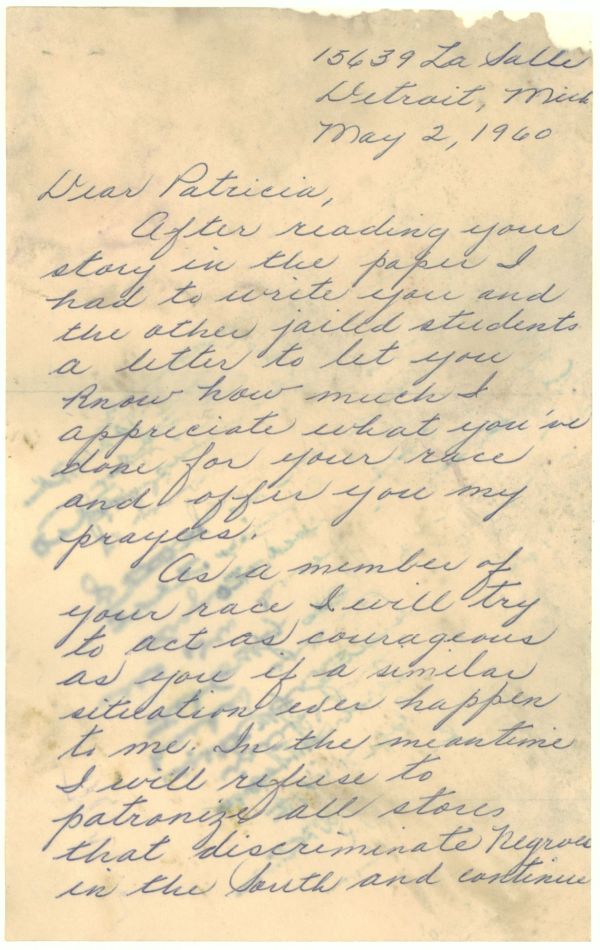 15639 La Salle
Detroit, Mich
May 2, 1960
Dear Patricia,
After reading your
story in the paper I
had to write you and
the other jailed students
a letter to let you
know how much I
appreciate what you've
done for your race
and offer you my
prayers.
As a member of
your race I will try
to act as courageous
as you if a similar
situation ever happen
to me. In the meantime
I will refuse to
patronize all stores
that discriminate Negroes
in the South and continue